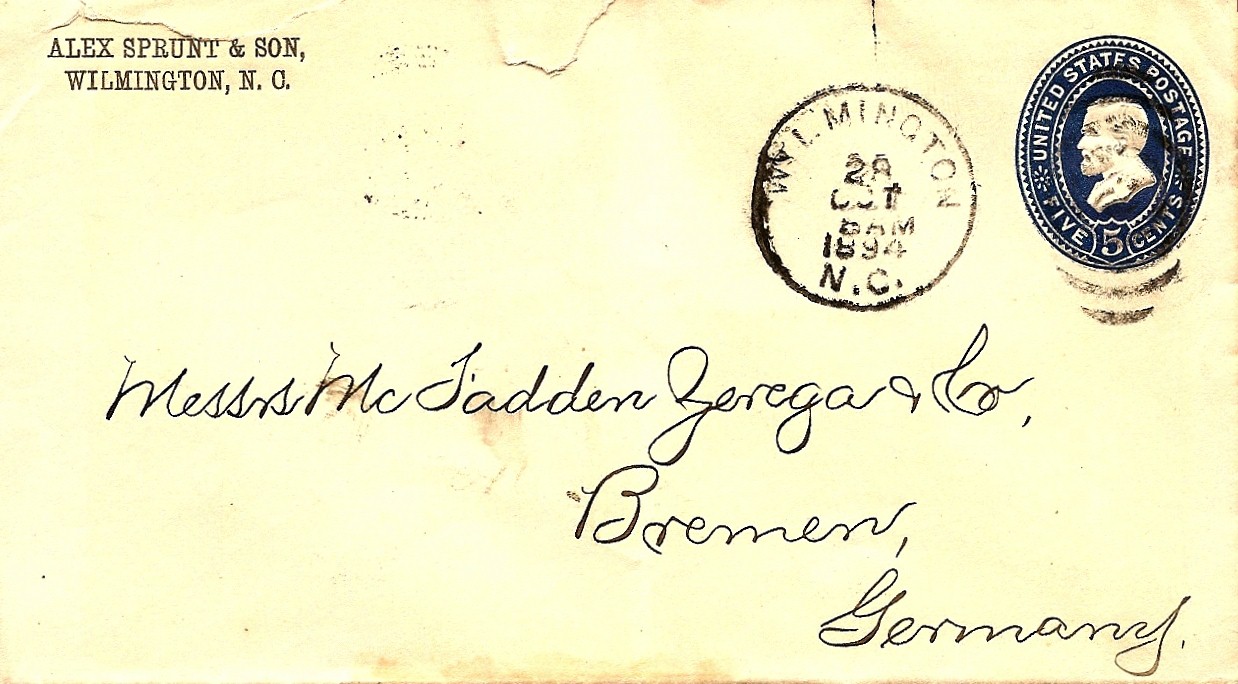 ALEX SPRUNT & SON,
WILMINGTON, N. C.
WILMINGTON
OCT
8AM
1894
N.C.
UNITED STATES POSTAGE
FIVE 5 CENTS
Messrs McFadden Zerega & Co,
Bremen,
Germany.